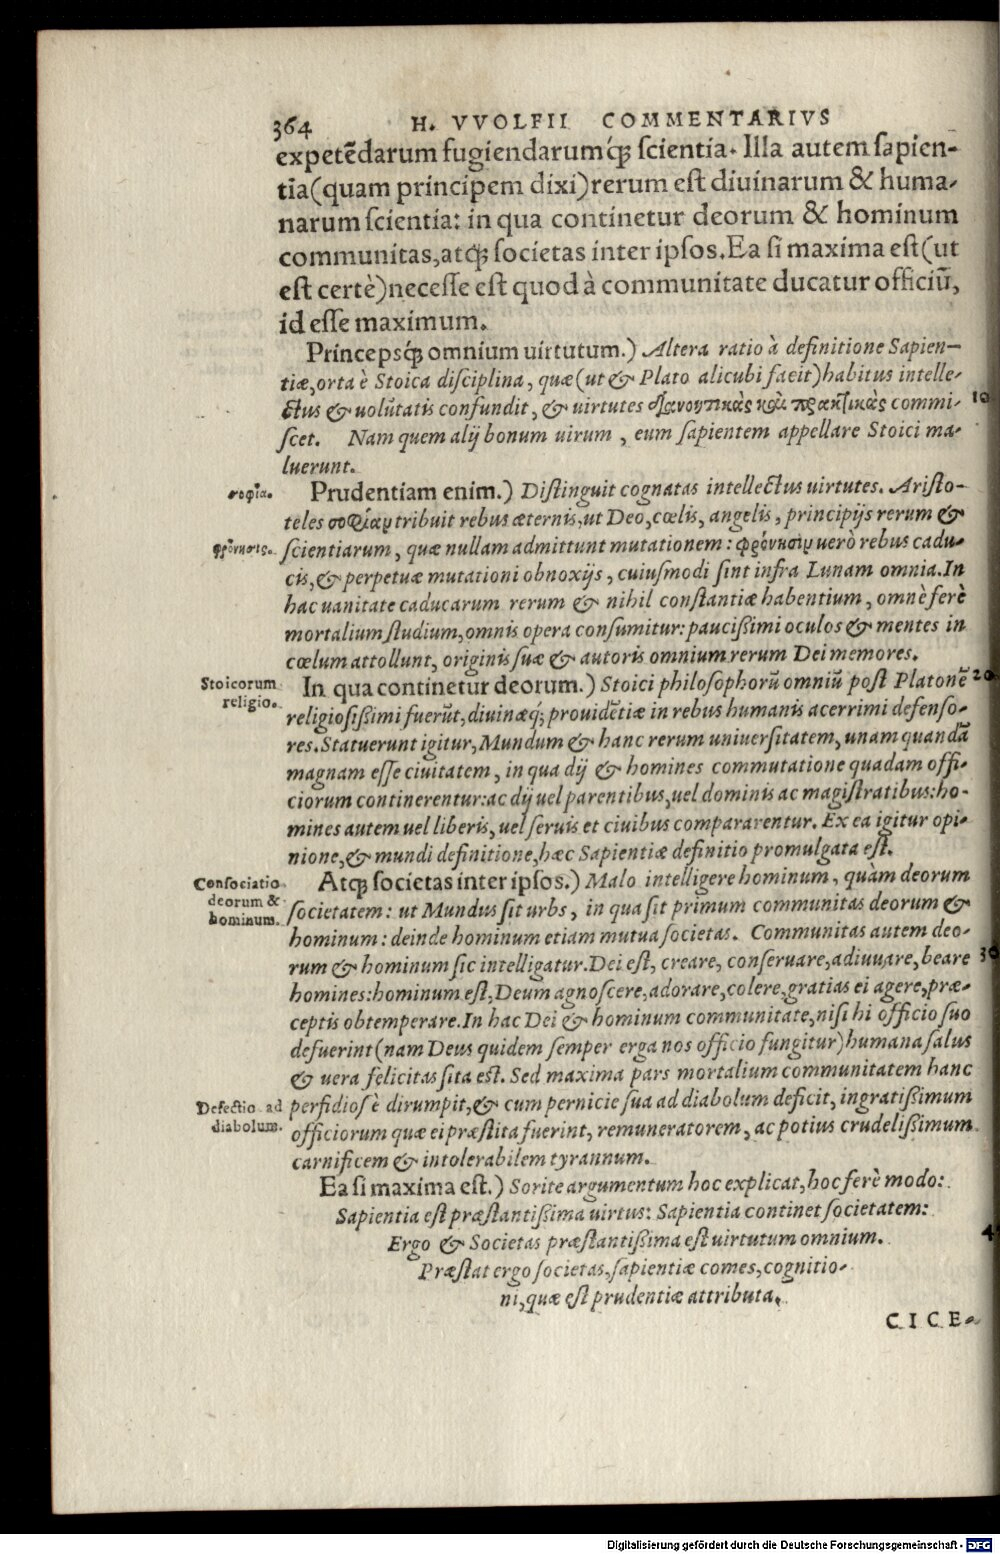 364 H. VVOLFII COMMENTARIVS
expetẽdarum fugiendarumq́ꝫ scientia. Illa autem sapien-
tia(quam principem dixi)rerum est diuinarum & huma-
narum scientia: in qua continetur deorum & hominum
communitas, atqꝫ societas inter ipsos. Ea si maxima est(ut
est certè)necesse est quod à communitate ducatur officiũ,
id esse maximum.
Princepsq́ꝫ omnium uirtutum.) Altera ratio à definitione Sapien-
tiæ, orta è Stoica disciplina, quæ(ut & Plato alicubi facit)habitus intelle-
ctus & uolũtatis confundit, & uirtutes διανοητικὰς καὶ πρακτικὰς commi- 10
scet. Nam quem alij bonum uirum, eum sapientem appellare Stoici ma-
luerunt.
σοφία. Prudentiam enim.) Distinguit cognatas intellectus uirtutes. Aristo-
teles σοφίαν tribuit rebus æternis, ut Deo, cœlis, angelis, principijs rerum &
φρόνησις. scientiarum, quæ nullam admittunt mutationem: φρόνησιν uerò rebus cadu-
cis, & perpetuæ mutationi obnoxijs, cuiusmodi sint infra Lunam omnia. In
hac uanitate caducarum rerum & nihil constantiæ habentium, omnè ferè
mortalium studium, omnis opera consumitur: paucißimi oculos & mentes in
cœlum attollunt, originis suæ & autoris omnium rerum Dei memores.
Stoicorum religio. In qua continetur deorum.) Stoici philosophorũ omniũ post Platonẽ 20
religiosißimi fuerũt, diuinæq́; prouidẽtiæ in rebus humanis acerrimi defenso-
res. Statuerunt igitur, Mundum & hanc rerum uniuersitatem, unam quandã
magnam esse ciuitatem, in qua dij & homines commutatione quadam offi-
ciorum continerentur: ac dij uel parentibus, uel dominis ac magistratibus: ho-
mines autem uel liberis, uel seruis et ciuibus compararentur. Ex ea igitur opi-
nione, & mundi definitione, hæc Sapientiæ definitio promulgata est.
Consociatio deorum & hominum. Atqꝫ societas inter ipsos.) Malo intelligere hominum, quàm deorum
societatem: ut Mundus sit urbs, in qua sit primum communitas deorum &
hominum: deinde hominum etiam mutua societas. Communitas autem deo-
rum & hominum sic intelligatur. Dei est, creare, conseruare, adiuuare, beare 30
homines: hominum est, Deum agnoscere, adorare, colere, gratias ei agere, præ-
ceptis obtemperare. In hac Dei & hominum communitate, nisi hi officio suo
defuerint(nam Deus quidem semper erga nos officio fungitur)humana salus
& uera felicitas sita est. Sed maxima pars mortalium communitatem hanc
Defectio ad diabolum. perfidiosè dirumpit, & cum pernicie sua ad diabolum deficit, ingratißimum
officiorum quæ ei præstita fuerint, remuneratorem, ac potius crudelißimum
carnificem & intolerabilem tyrannum.
Ea si maxima est.) Sorite argumentum hoc explicat, hoc ferè modo:
Sapientia est præstantißima uirtus: Sapientia continet societatem:
Ergo & Societas præstantißima est uirtutum omnium. 4
Præstat ergo societas, sapientiæ comes, cognitio-
ni, quæ est prudentiæ attributa.
CICE-
Digitalisierung gefördert durch die Deutsche Forschungsgemeinschaft - DFG